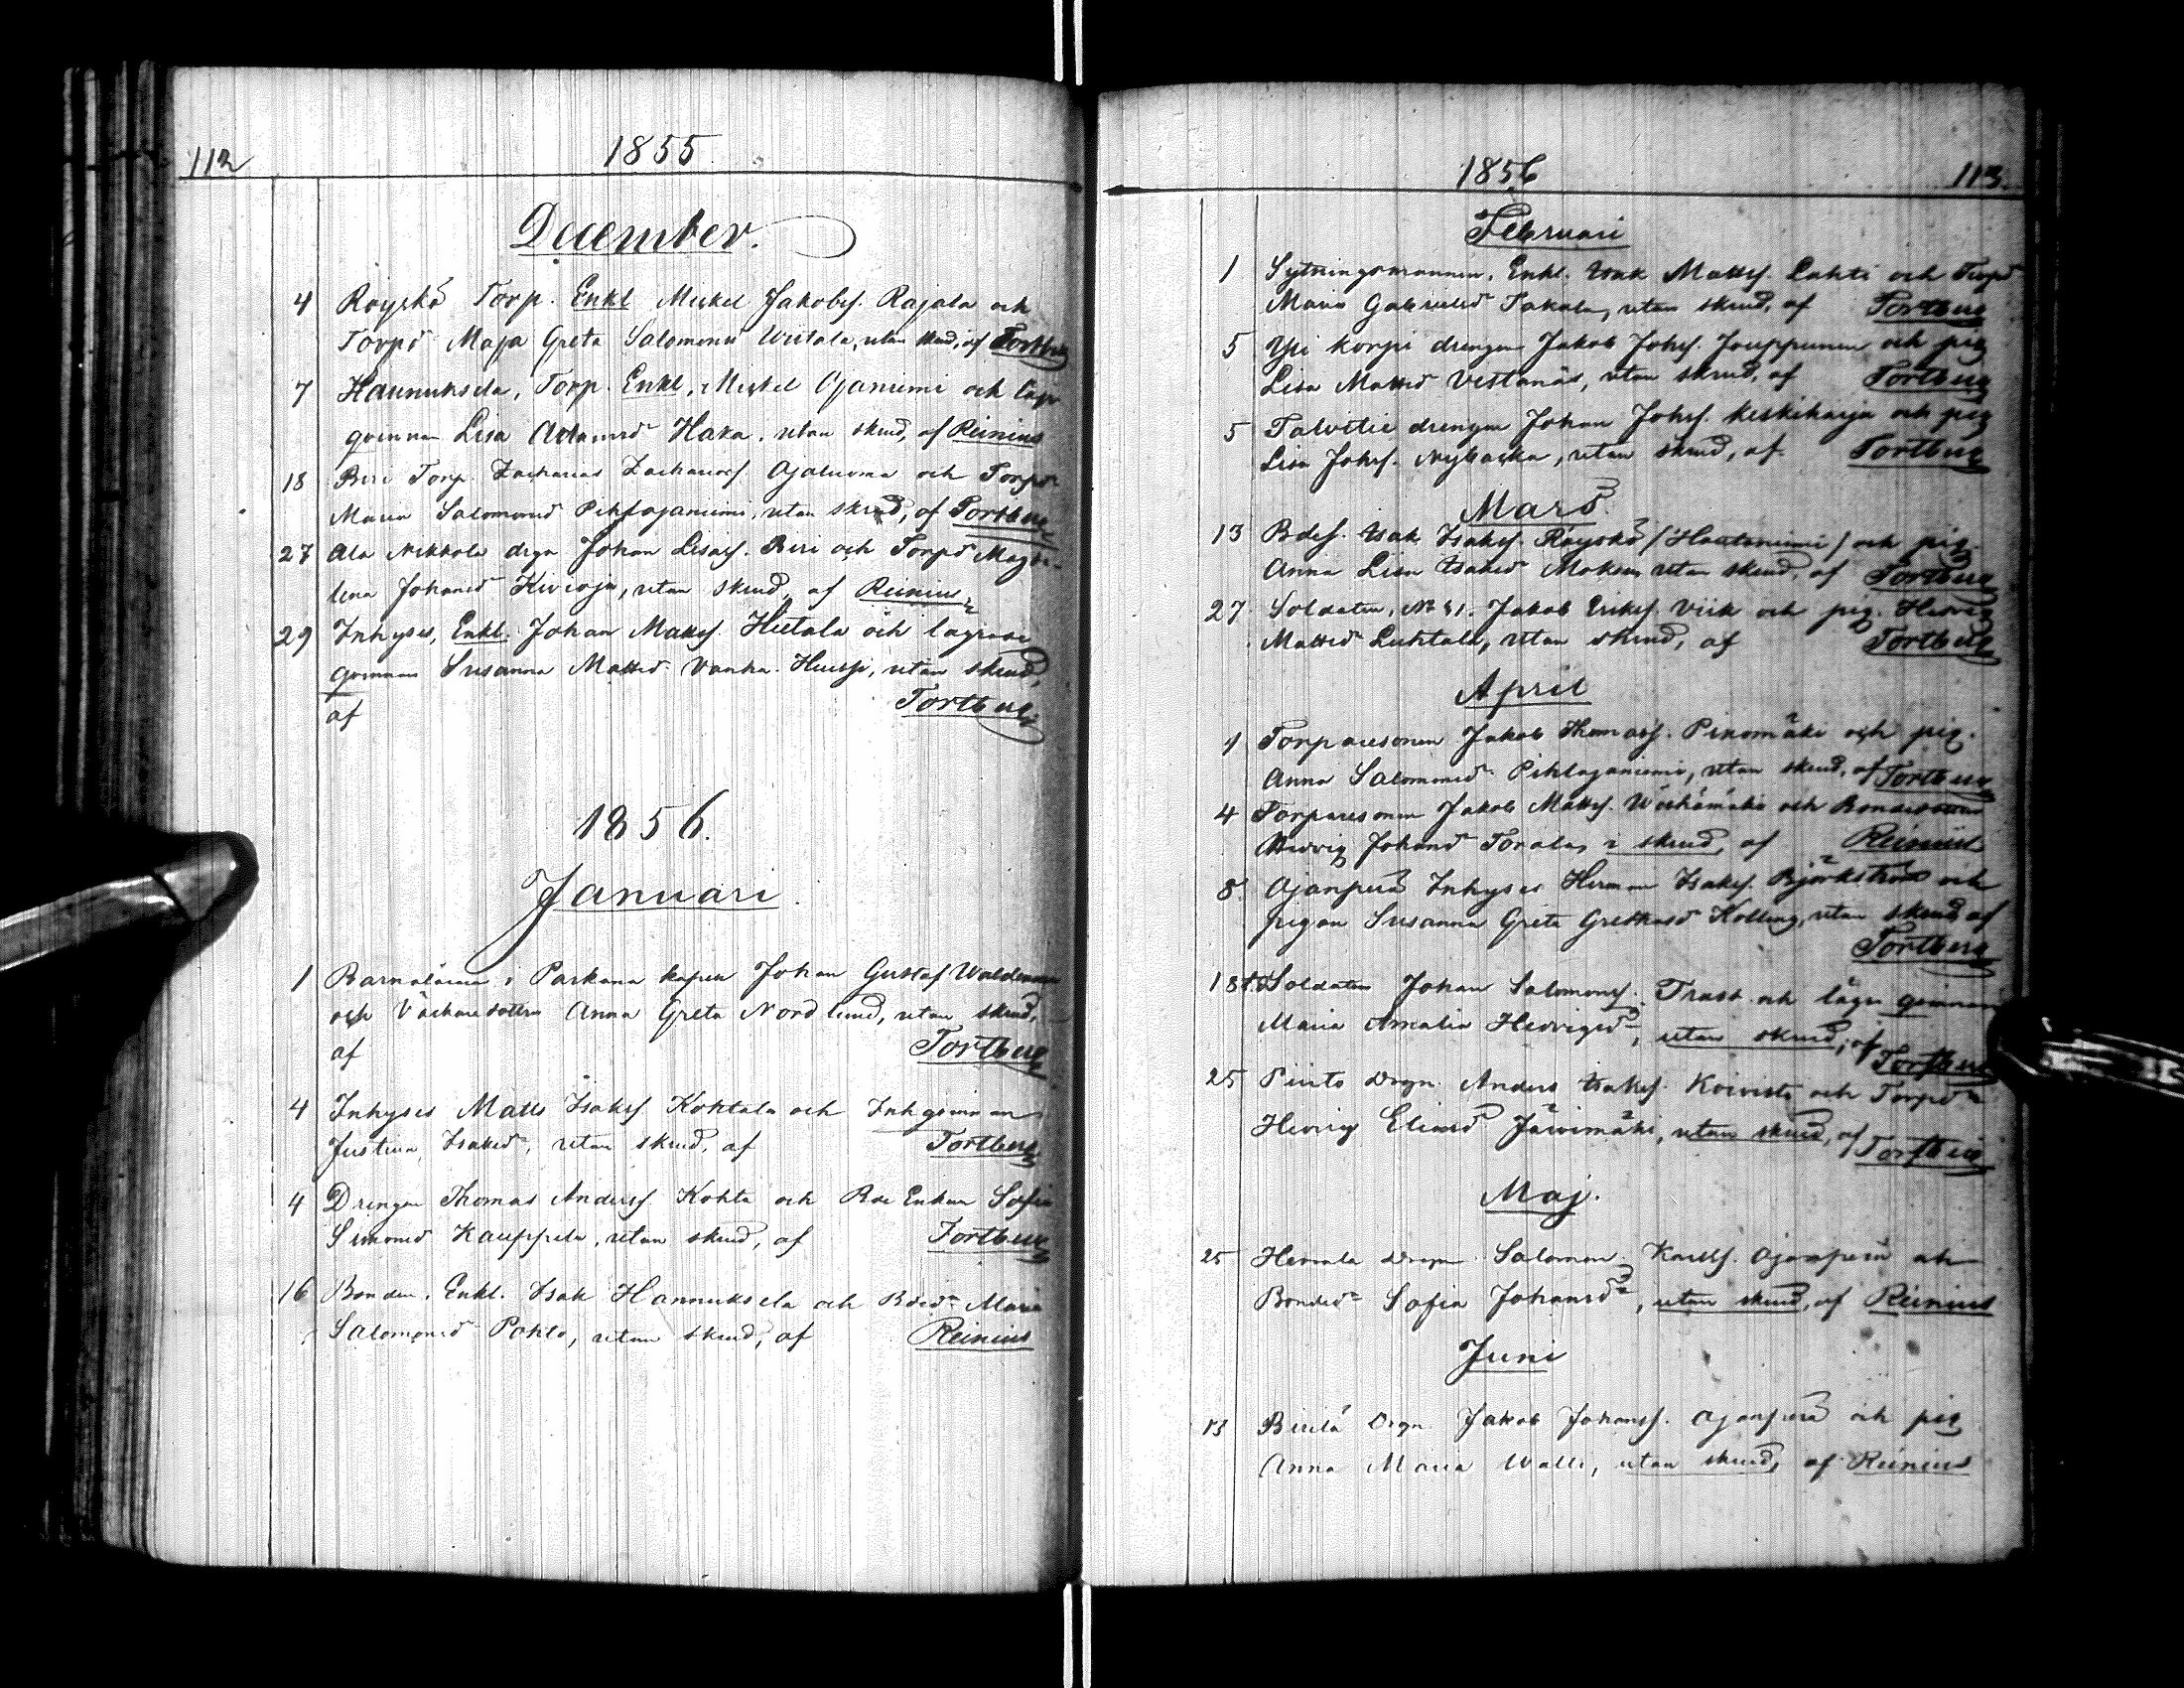 112
1855
December.
4 Röyskö Torp. Enkl Mickel Jakobsf. Rajala och
Torpd Maja Greta Salomonsd Wiitala, utan skrud, af Tortberg
7 Hannuksela, Torp. Enkl. Mickel Ojaniemi och läger
qvinnan Lisa Adamsd Haka, utan skrud, af Reinius
18 Biri Torp. Zacharias Zachariasf. Ojaluoma och Torpd
Maria Salomonsd Pihlajaniemi, utan skrud, af Tortberg
27 Ala Nikkola drgn Johan Lisasf. Biri och Torpd Magda-
lena Johansd Kivioja, utan skrud, af Reinius
29 Inhyses, Enkl. Johan Mattsf. Hietala och lägrade
qvinnan Susanna Mattsd Vanha Huissi, utan skrud,
af Tortberg
1856.
Januari.
1 Barnaläraren i Parkano kapell Johan Gustaf Waldemar
och Väckaredottren Anna Greta Nordlund, utan skrud,
af Tortberg
4 Inhyses Matts Isaksf. Kohtala och Inhqvinnan
Justina Isaksd, utan skrud, af Tortberg
4 Drengen Thomas Andersf. Kohta och Bde Enkan Sofia
Simonsd Kauppila, utan skrud, af Tortberg
16 Bonden, Enkl. Isak Hannuksela och Bdsd Maria
Salomonsd Pohto, utan skrud, af Reinius
1856
113.
Februari
1 Sytningsmannen, Enkl. Isak Mattsf. Lahti och Torpd
Maria Gabrielsd Takala, utan skrud, af Tortberg
5 Yli korpi drengen Jakob Johsf. Jouppinen och pig
Lisa Mattsd Vestanäs, utan skrud, af Tortberg
5 Talvitie drengen Johan Johsf. Keskiharja och pig
Lisa Johsf. Nybacka, utan skrud, af Tortberg
Mars.
13 Bdesf. Isak Isaksf. Röyskö (Hautaniemi) och pig.
Anna Lisa Isaksd Moksu, utan skrud, af Tortberg
27. Soldaten, No 41. Jakob Eriksf. Viik och pig. Hedvig
Mattsd Luhtala, utan skrud, af Tortberg
April
1 Torparesonen Jakob Thomasf. Pinomäki och pig.
Anna Salomonsd Pihlajaniemi, utan skrud, af Tortberg
4 Torparesonen Jakob Mattsf. Wäähämäki och Bondedottren
Hedvig Johansd Torala, i skrud, af Reinius
8 Ojanperä Inhyses Herman Isaksf. Björkström och
pigan Susanna Greta Gretkasd Kolling, utan skrud, af
Tortberg
18 Soldaten Johan Salomonsf. Trast och lägr qvinnan
Maria Amalia Hedvigsd, utan skrud, af Tortberg
25 Pinto Drgn. Anders Isaksf. Koivisto och Torpd
Hedvig Eliasd Järvimäki, utan skrud, af Tortberg
Maj.
25 Hernala Drgn Salomon Karlsf. Ojanperä och
Bonded Sofia Johansd, utan skrud, af Reinius
Juni
13 Birilä Drgn. Jakob Johansf. Ojanperä och pig
Anna Maria Walli, utan skrud, af Reinius